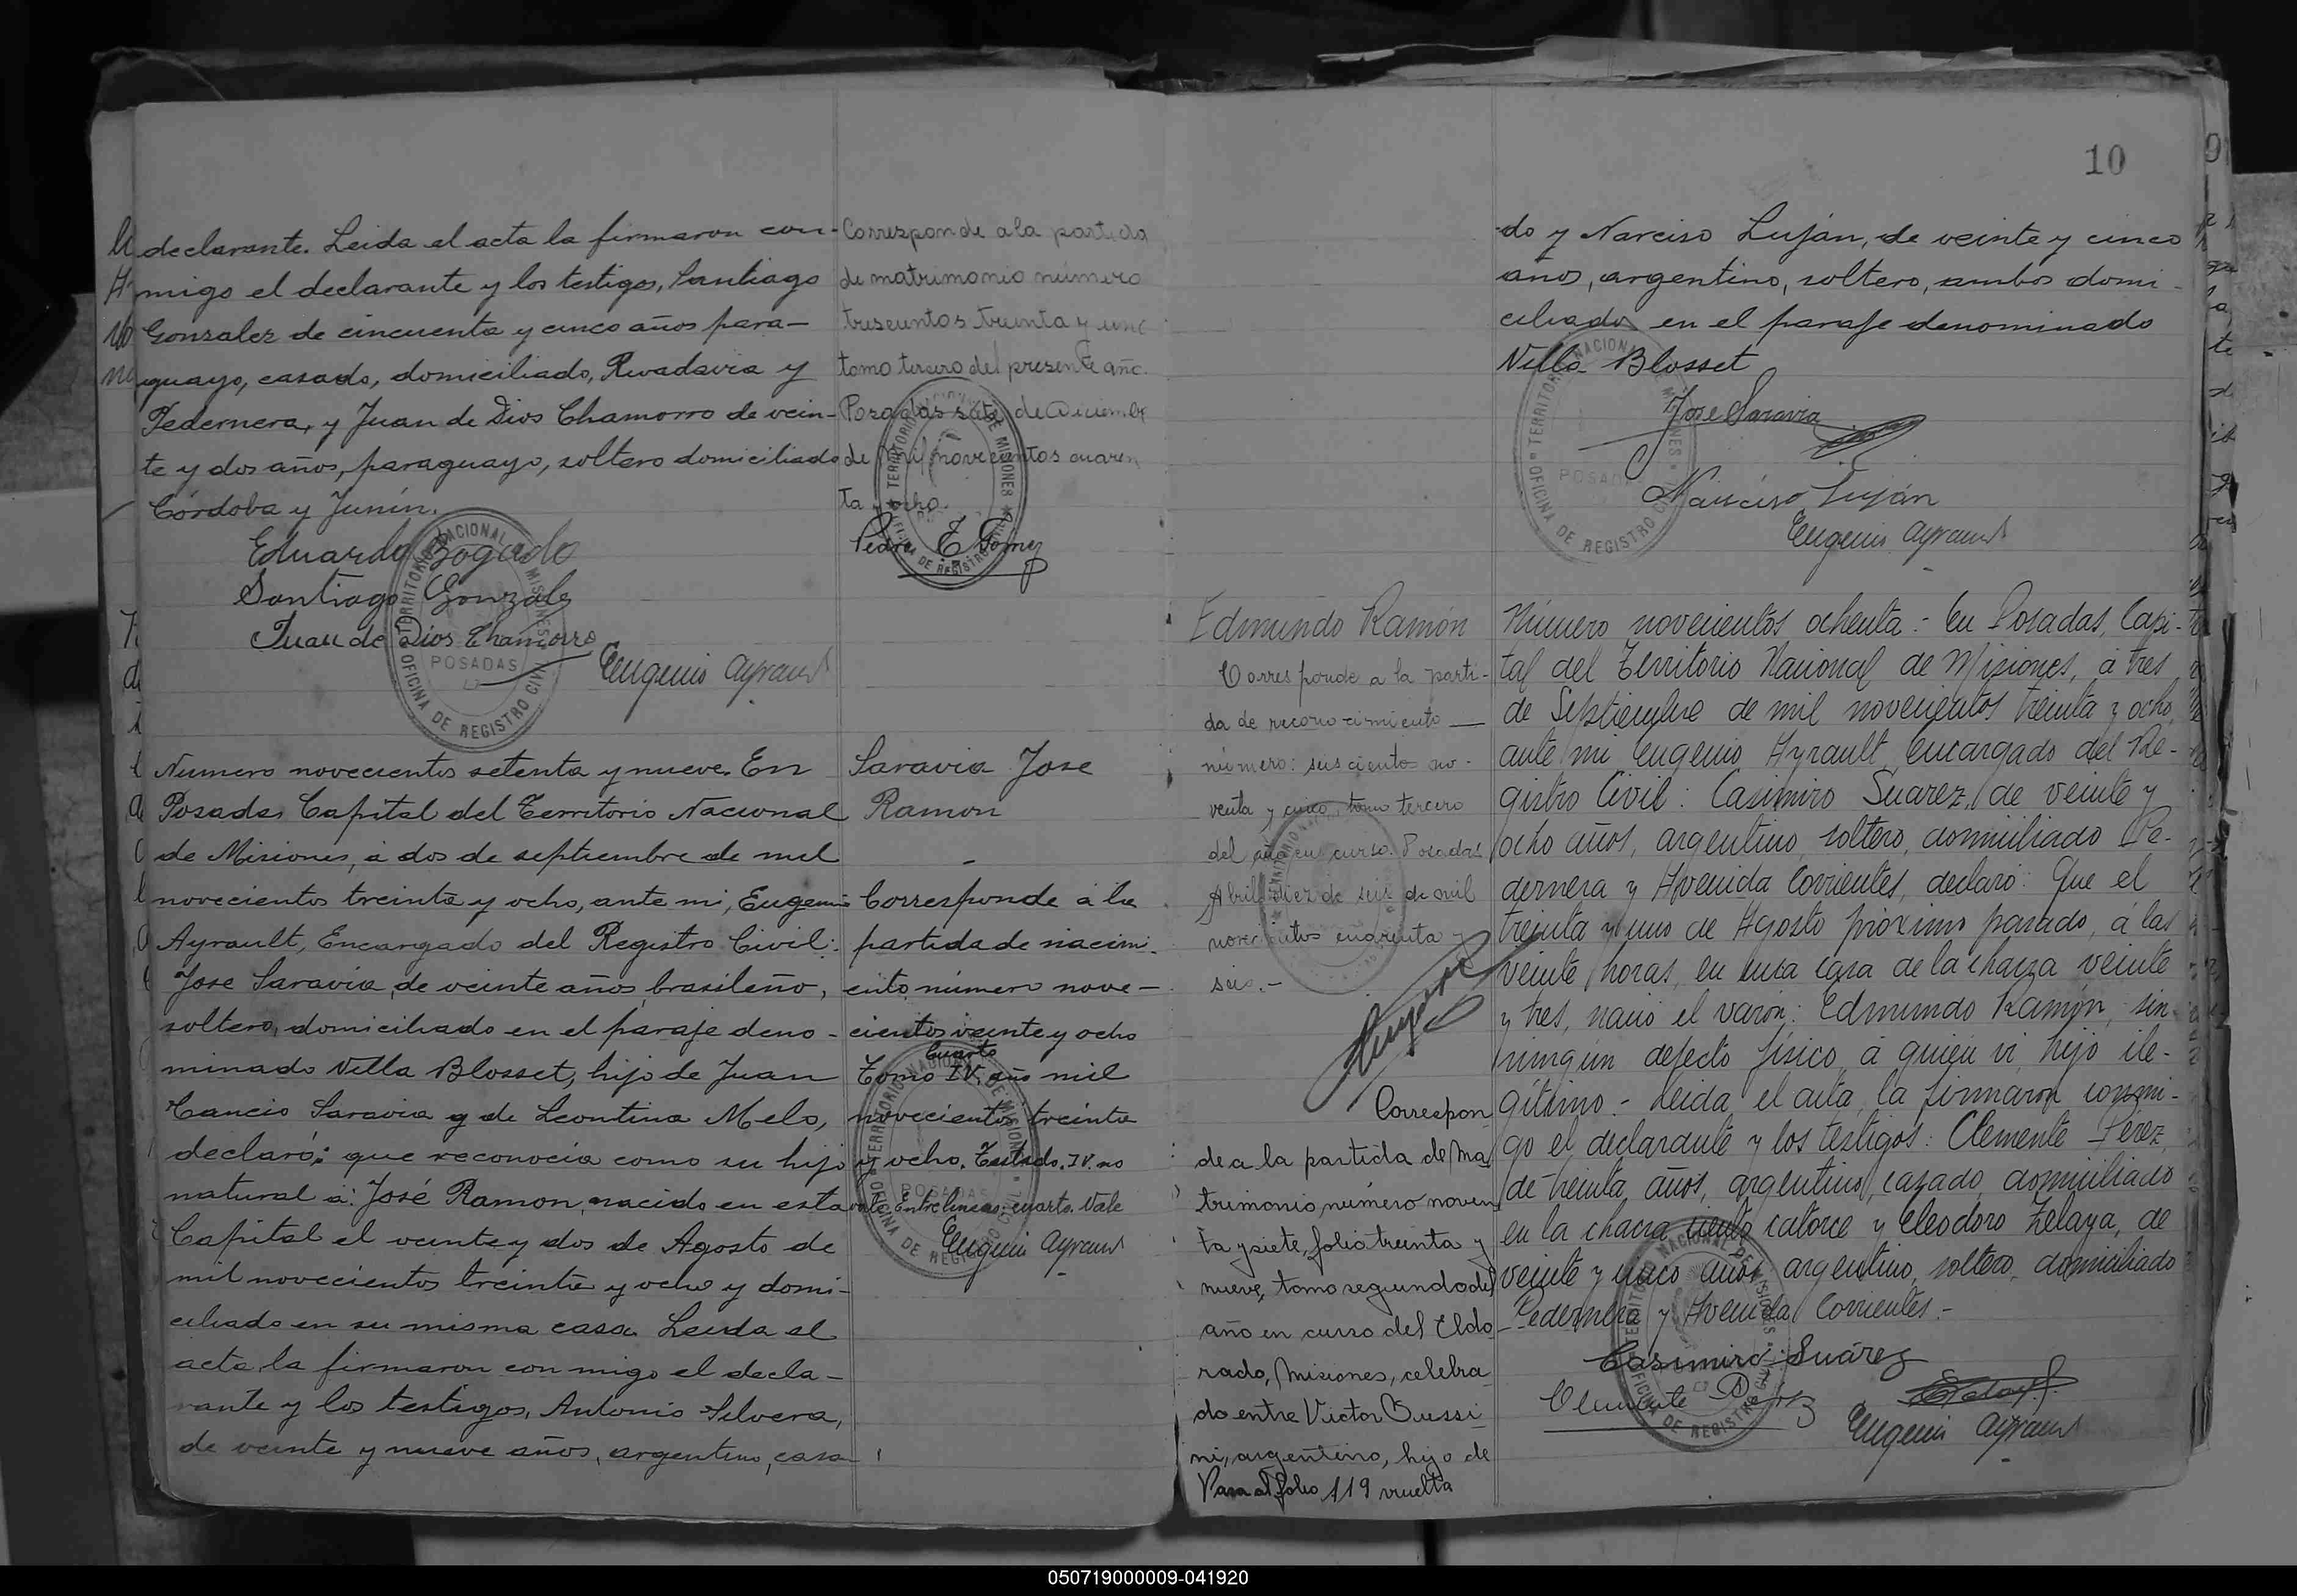 declarante. Leida el acta la firmaron con-
migo el declarante y los testigos, Santiago
Gonzalez de cincuenta y cinco años para-
guayo, casado, domiciliado, Rivadavia y
Pedernera, y Juan de Dios Chamorro de vein-
te y dos años, paraguayo, soltero domiciliado
Córdoba y Junín.
Eduardo Bogado
Santiago Gonzale
Juan de Dios Chamorro
Eugenio Ayrault
TERRITORIO NACIONAL DE MISIONES
POSADAS
OFICINA DE REGISTRO CIVIL
Corresponde a la partida
de matrimonio número
trescientos treinta y uno
tomo tercero del presente año.
Posadas siete de Diciembre
de mil novecientos cuaren
ta y ocho.
Pedro E Gomez
Numero novecientos setenta y nueve. En
Posadas Capital del Territorio Nacional
de Misiones, á dos de septiembre de mil
novecientos treinta y ocho, ante mi, Eugenio
Ayrault, Encargado del Registro Civil:
Jose Saravia, de veinte años brasileño,
soltero, domiciliado en el paraje deno-
minado Villa Blosset, hijo de Juan
Cancio Saravia y de Leontina Melo,
declaró: que reconocia como su hijo
natural a: José Ramon, nacido en esta
Capital el veinte y dos de Agosto de
mil novecientos treinta y ocho y domi-
ciliado en su misma casa. Leida el
acta la firmaron con migo el decla-
rante y los testigos, Antonio Silvera,
de veinte y nueve años, argentino, casa-
Saravia Jose
Ramon
-
Corresponde á la
partida de nacimi-
ento número nove-
cientos veinte y ocho
Cuarto
Tomo IV, año mil
novecientos treinta
y ocho. Testado. IV. no
vale. Entrelineas: cuarto. Vale
Eugenio Ayrault
10
do y Narciso Luján, de veinte y cinco
años, argentino, soltero, ambos domi-
ciliados en el paraje denominado
Villa Blosset
Jose Saravia
Narciso Luján
Eugenio Ayrault
Edmundo Ramón
Corresponde a la parti-
da de reconocimiento
número: seiscientos no-
venta y cinco, tomo tercero
del año en curso. Posadas
Abril diez de seis de mil
novecientos cuarenta y
seis.-
Correspon
de a la partida de Ma
trimonio número noven
ta y siete, folio treinta y
nueve, tomo segundo del
año en curso del Eldo
rado, Misiones, celebra
do entre Victor Bussi
ni, argentino, hijo de
Pasa al folio 119 vuelta
Número novecientos ochenta:- En Posadas, Capi-
tal del Territorio Nacional de Misiones, á tres
de Septiembre de mil novecientos treinta y ocho,
ante mi Eugenio Ayrault, Encargado del Re-
gistro Civil: Casimiro Suarez, de veinte y
ocho años, argentino, soltero, domiciliado Pe-
dernera y Avenida Corrientes, declaró: Que el
treinta y uno de Agosto próximo pasado, á las
veinte horas, en una casa de la chacra veinte
y tres, nació el varón: Edmundo Ramón, sin-
ningún defecto físico, á quien vi, hijo ile-
gítimo.- Leida el acta, la firmaron conmi-
go el declarante y los testigos: Clemente Pérez,
de treinta años, argentino, casado, domiciliado
en la chacra ciento catorce y Eleodoro Zelaya, de
veinte y cinco años, argentino, soltero, domiciliado
Pedernera y Avenida Corrientes.-
Casimiro Suárez
Clemente Pérez
Eugenio Ayrault
050719000009-041920